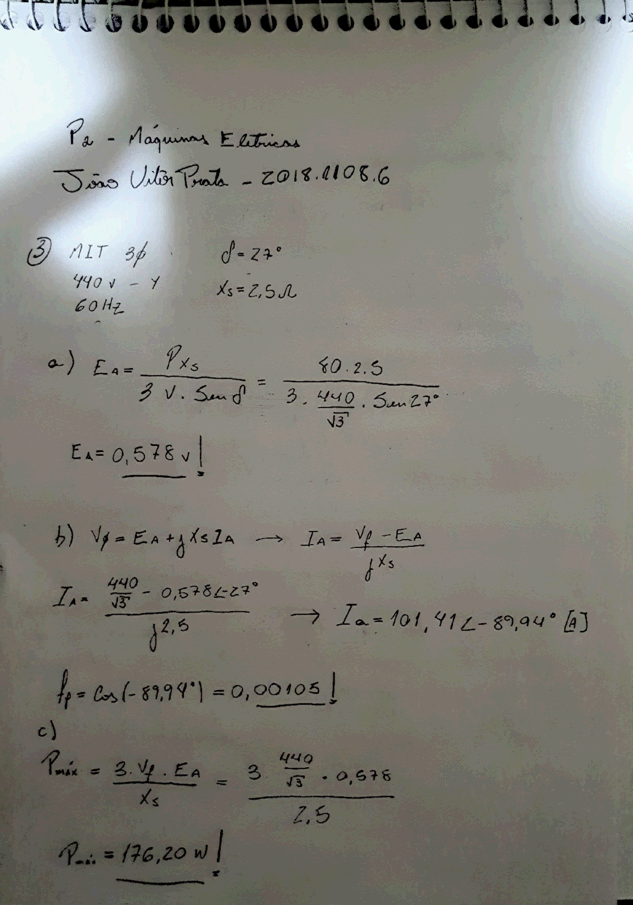 P2 - Máquinas Elétricas
João Vitor Prata - 2018.1108.6
③ MIT 3ϕ δ = 27°
440 v - Y Xs = 2,5 Ω
60 Hz
a) EA = PXs / 3 V. Sen δ = 80 . 2.5 / 3 . 440/√3 . Sen 27°
EA = 0,578 v !
b) Vϕ = EA + jXsIA → IA = Vf - EA / jXs
IA = 440/√3 - 0,578∠-27° / j2,5 → Ia = 101,41∠-89,94° [A]
fp = Cos(-89,94°) = 0,00105 !
c)
Pmáx = 3. Vf . EA / Xs = 3 440/√3 . 0,578 / 2,5
Pmáx = 176,20 W !